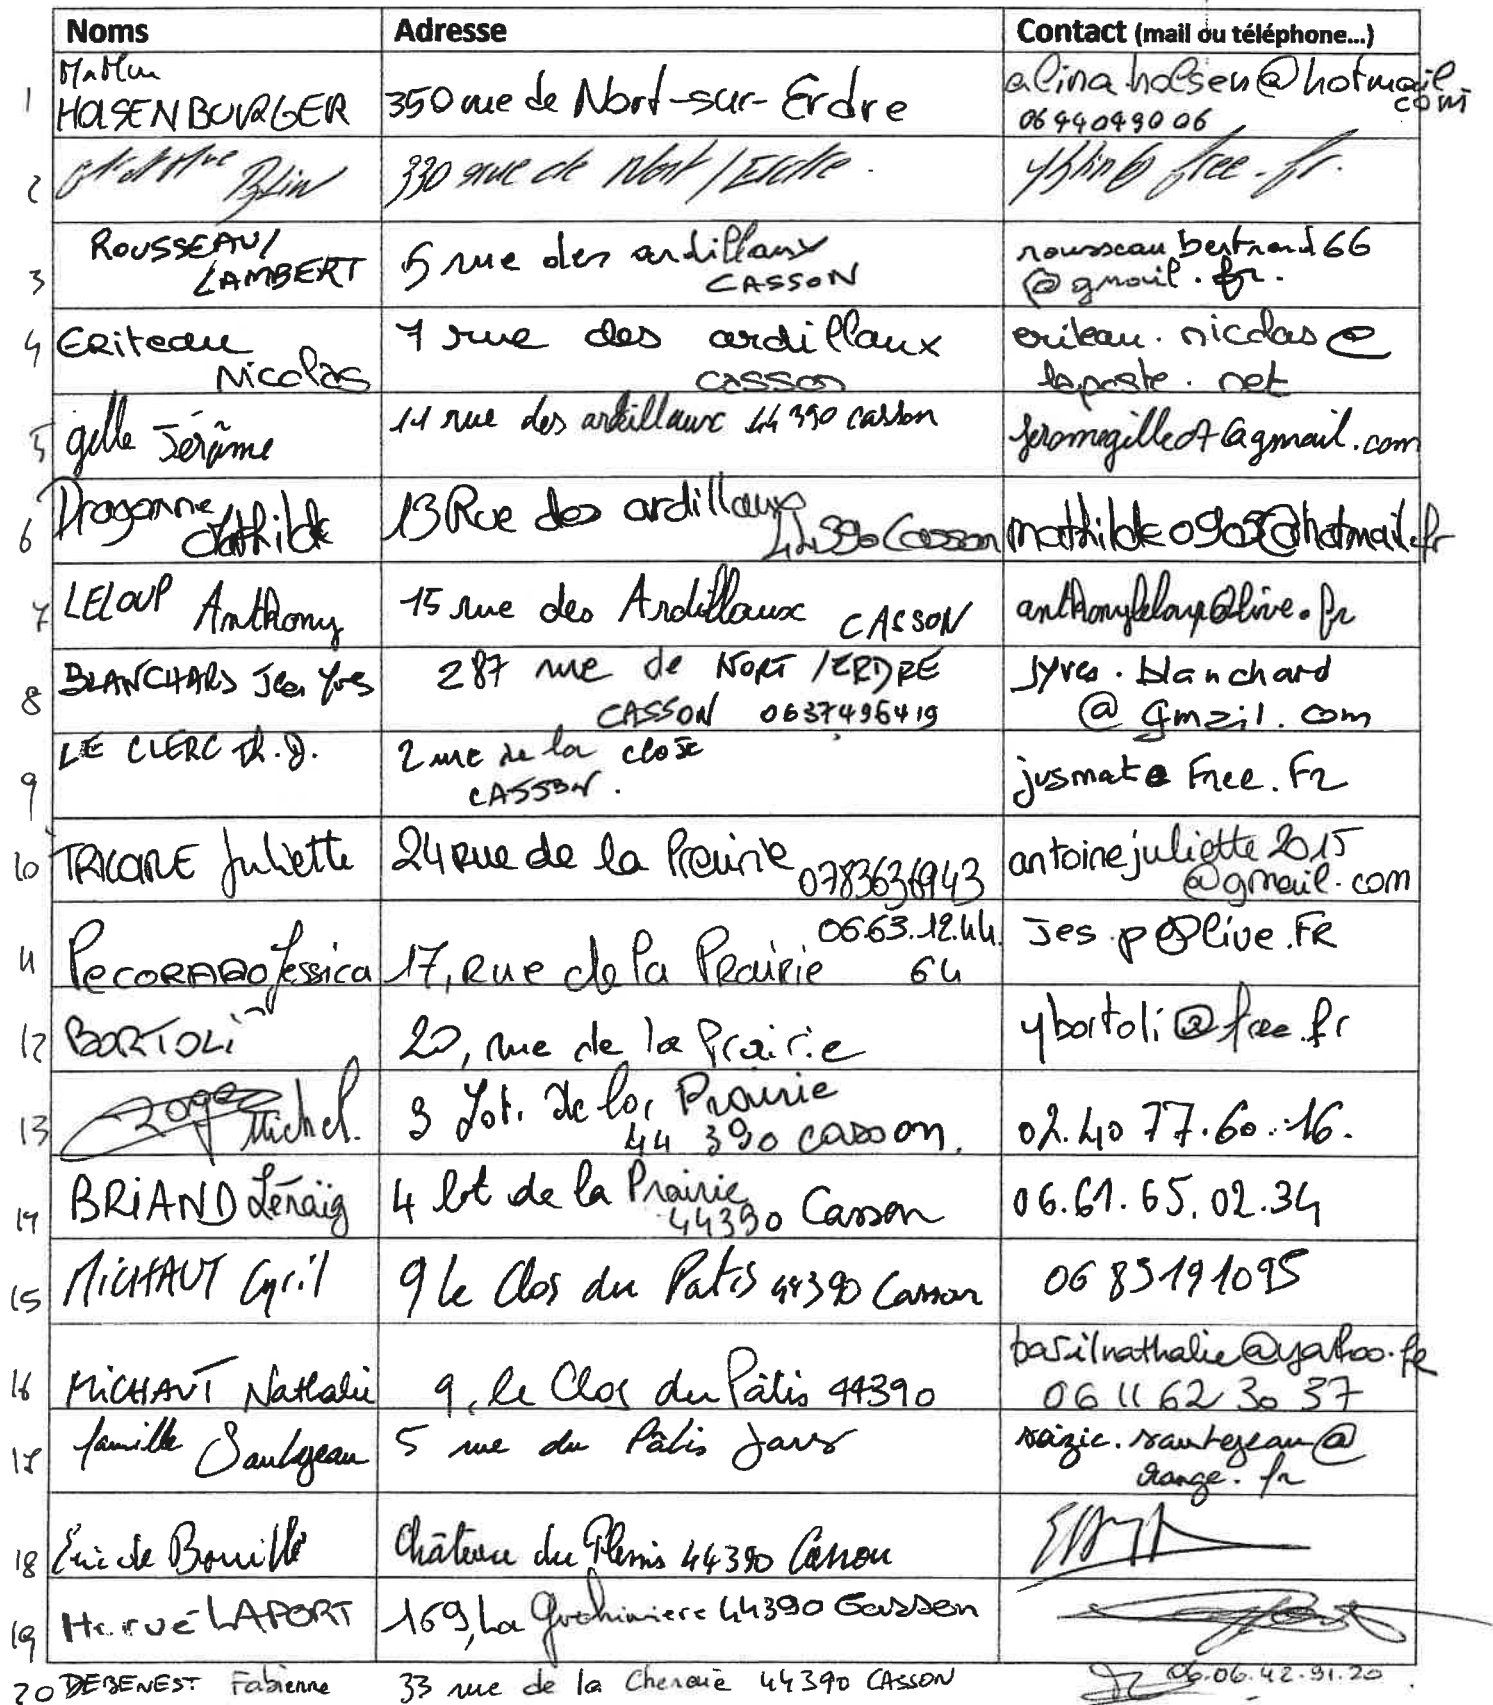 Noms Adresse Contact (mail ou téléphone...)
1 Mr Mme HOLSENBURGER 350 rue de Nort-sur-Erdre alina.holsen@hotmail.com
0644049006
2 Mr et Mme Blin 330 rue de Nort/Erdre. yblin@free.fr.
3 ROUSSEAU/ LAMBERT 5 rue des ardillaux CASSON rousseau.bertrand66
@gmail.fr.
4 Eriteau Nicolas 7 rue des ardillaux CASSON eriteau.nicolas@
laposte.net
5 gille Jérôme 11 rue des ardillaux 44390 casson jeromegille07@gmail.com
6 Dragonne Mathilde 13 Rue des ardillaux 44390 Casson mathilde0903@hotmail.fr
7 LELOUP Anthony 15 rue des Ardillaux CASSON anthonyleloup@live.fr
8 BLANCHARD Jean Yves 287 rue de NORT /ERDRE
CASSON 0637496419 jyves.blanchard
@gmail.com
9 LE CLERC Th.J. 2 rue de la
CASSON. jusmat@Free.Fr
10 Juliette 24 rue de la Prairie 0783636943 antoinejuliette2015
@gmail.com
11 PECORARO Jessica 17, rue de la Prairie 06.63.12.44.
64 Jes.p@live.FR
12 BORTOLI 20, rue de la Prairie ybortoli@free.fr
13 Roger Michel. 3 Lot. de la Prairie
44 390 casson. 02.40 77.60.16.
14 BRIAND Lénaïg 4 lot de la Prairie
44390 Casson 06.61.65.02.34
15 MICHAUT Cyril 9 le Clos du Patis 44390 Casson 06 85191095
16 MICHAUT Nathalie 9, le Clos du Pâtis 44390 basilnathalie@yahoo.fr
06 11 62 30 37
17 famille Sautejeau 5 rue du Pâtis Jars soizic.sautejeau@
orange.fr
18 Eric de Bouillé Château du Plessis 44390 Casson
19 Hervé LAPORT 169, La 44390 Casson
20 DEBENEST Fabienne 33 rue de la Chenaie 44390 CASSON 06.06.42.91.20